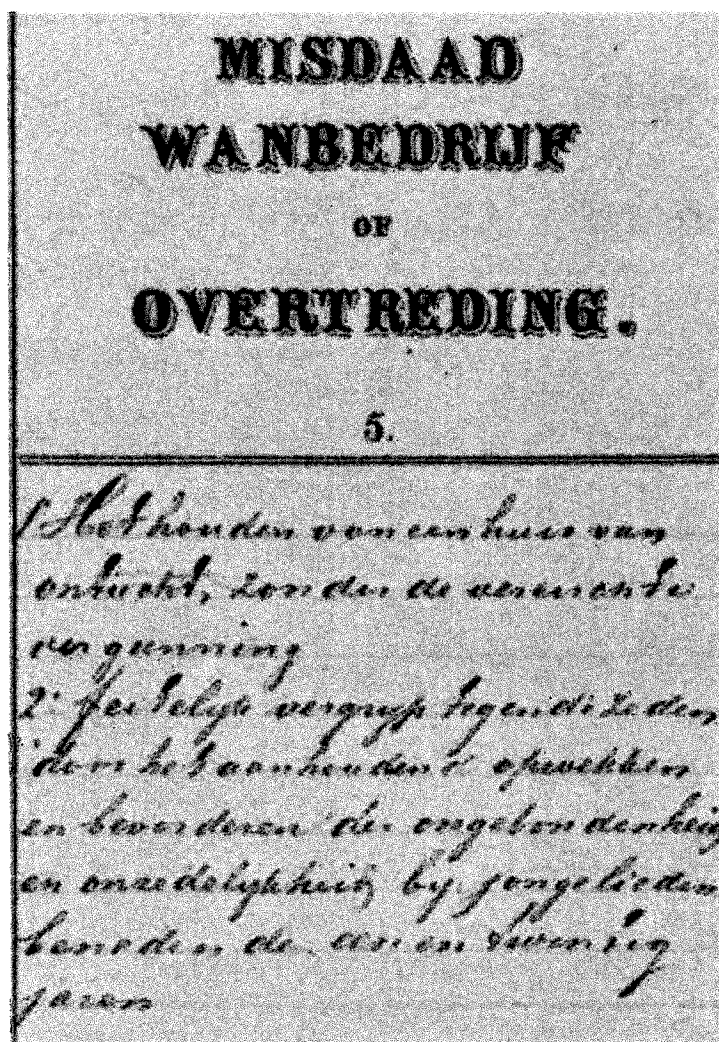 MISDAAD
WANBEDRIJF
OF
OVERTREDING.
5.
1 Het houden van een huis van
ontucht, zonder de vereischte
vergunning
2: feitelijk vergryp tegen de zeden
door het aanhoudend opwekken
en bevorderen der ongebondenheid
en onzedelykheid by jongelieden
beneden de een en twintig
jaren